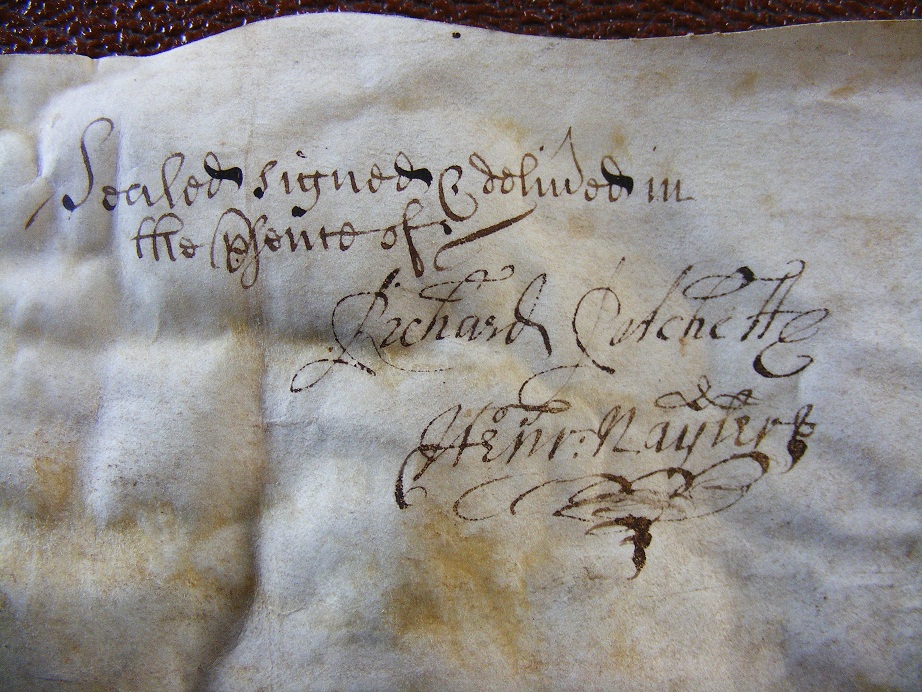 Sealed signed & deliūed in
the p̱sence of
Richard Cotchett
Henr: Nayler